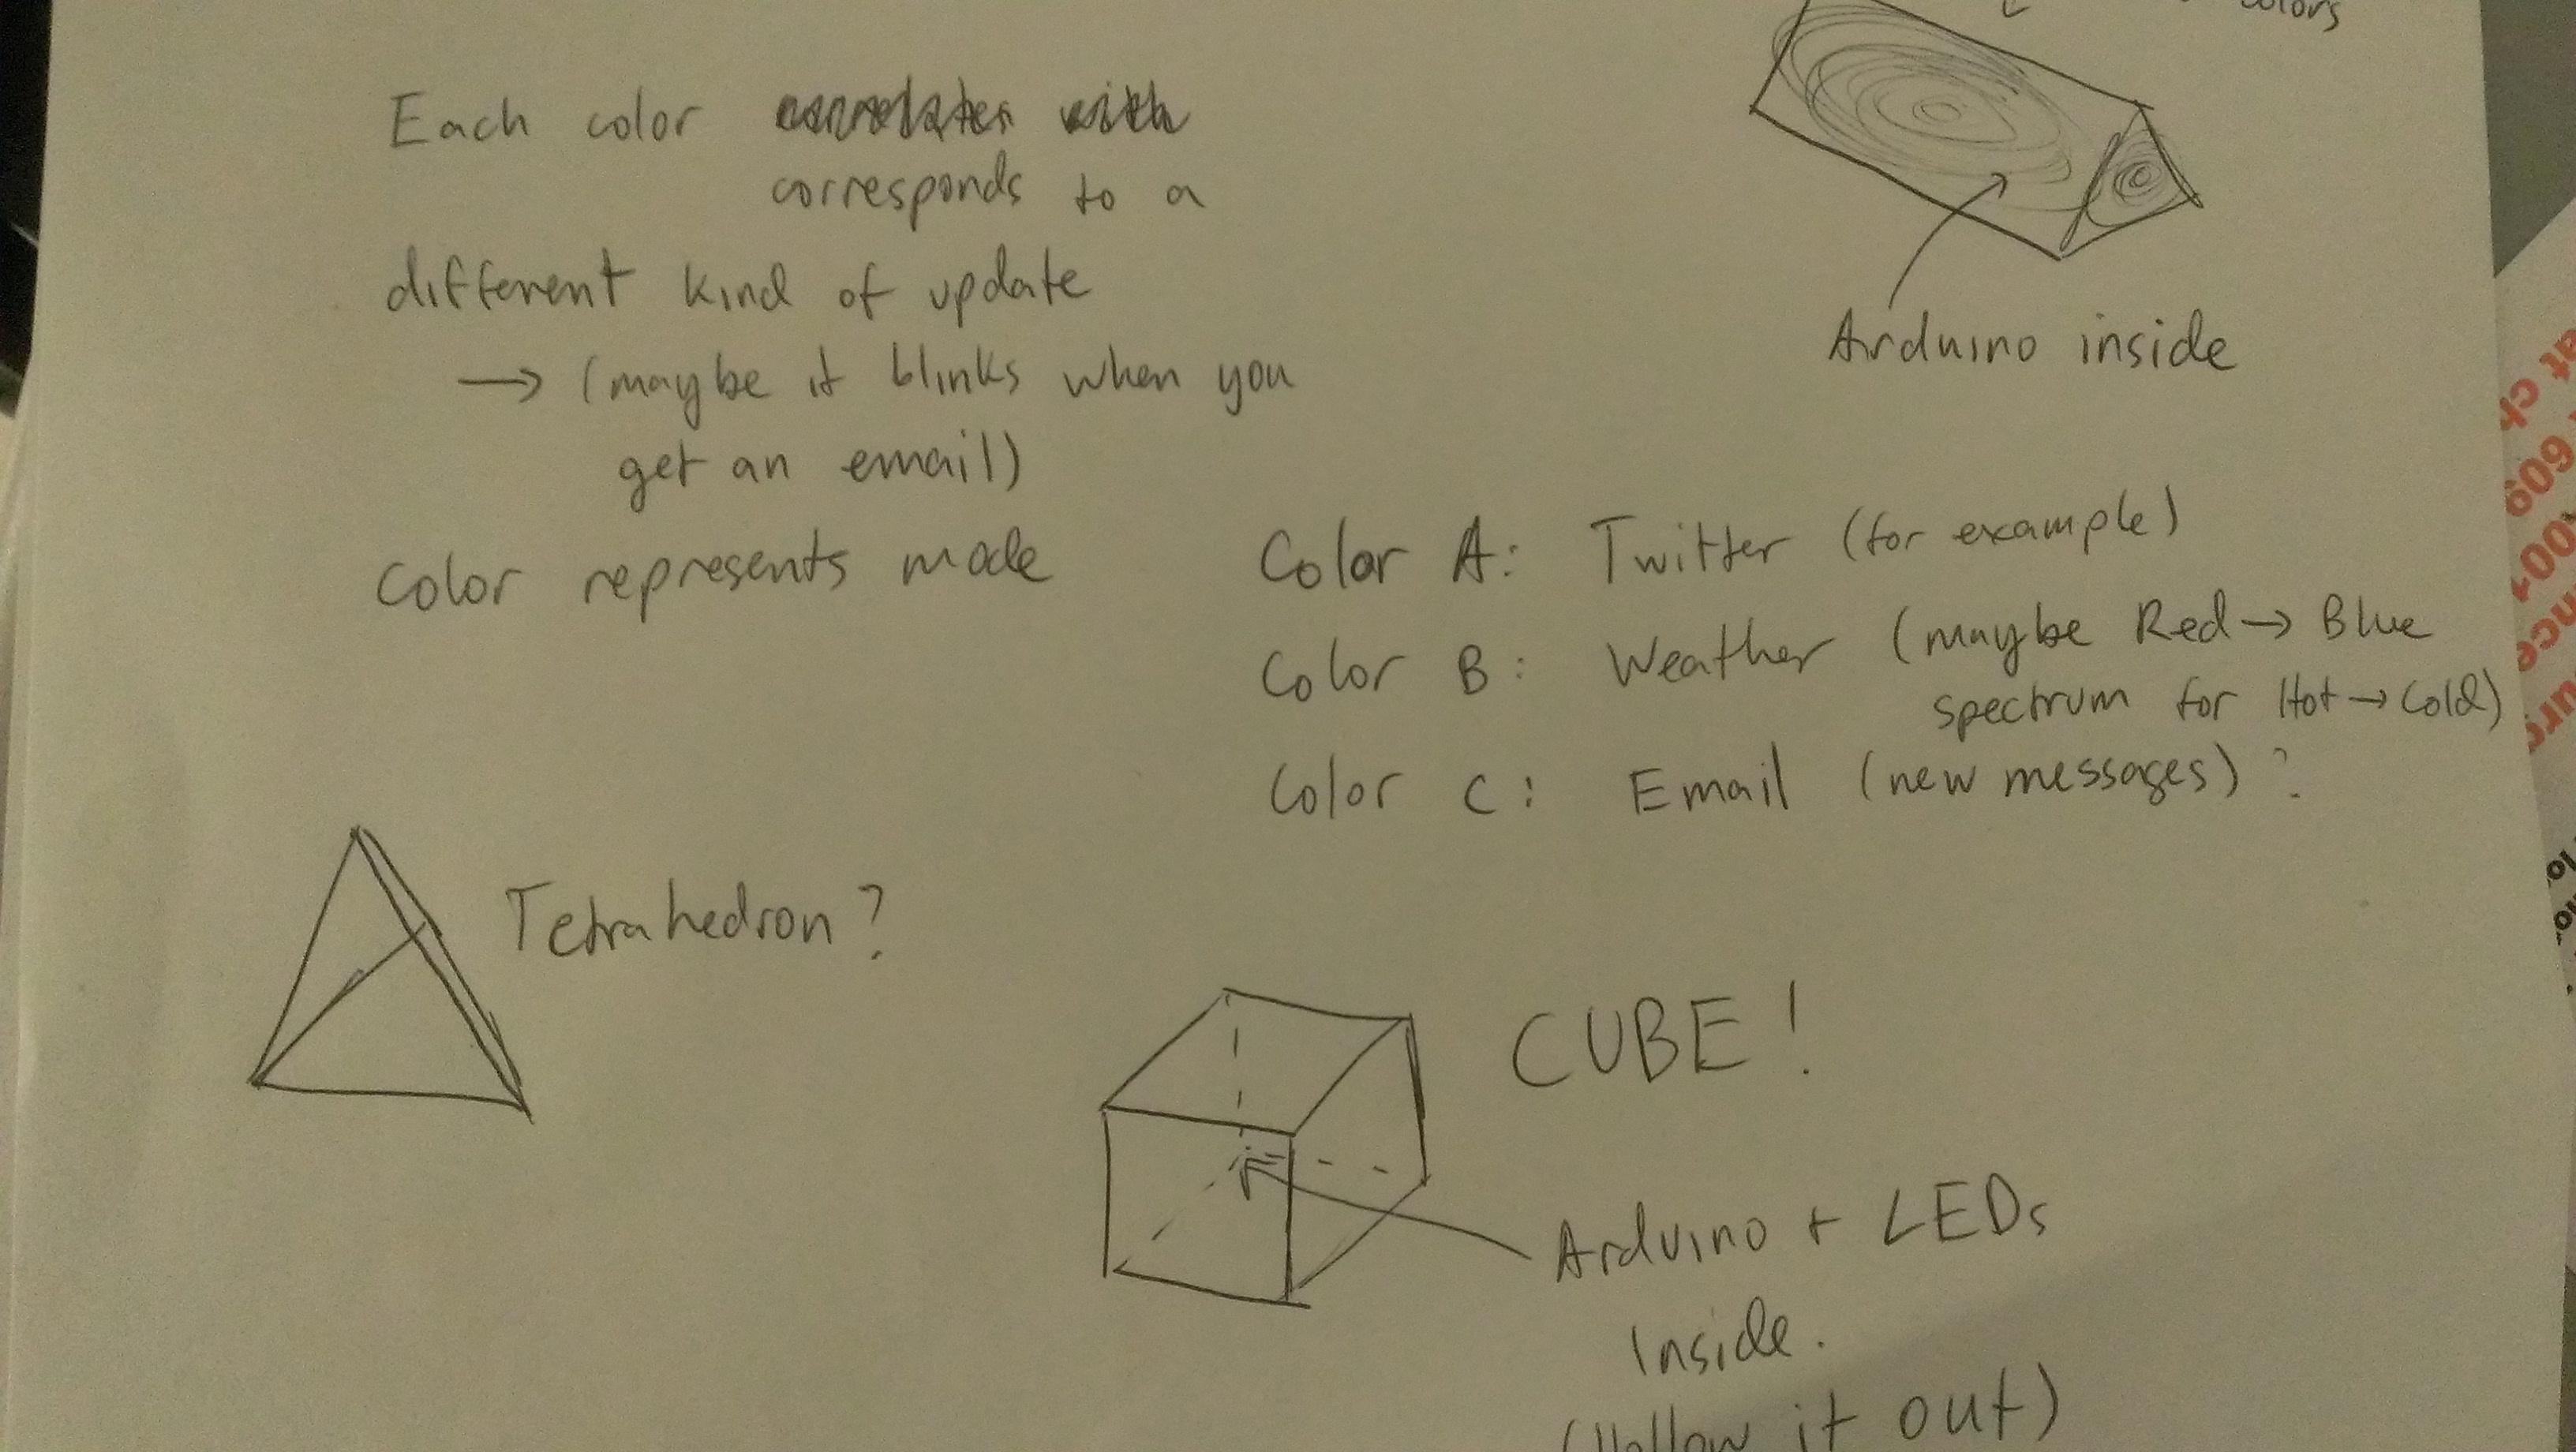 colors
Each color correlates with
corresponds to a
different kind of update
→ (maybe it blinks when you
get an email)
Color represents mode
Arduino inside
Color A: Twitter (for example)
Color B: Weather (maybe Red → Blue
spectrum for Hot → Cold)
Color C: Email (new messages)?
Tetrahedron?
CUBE!
Arduino + LEDs
Inside.
(Hollow it out)
609